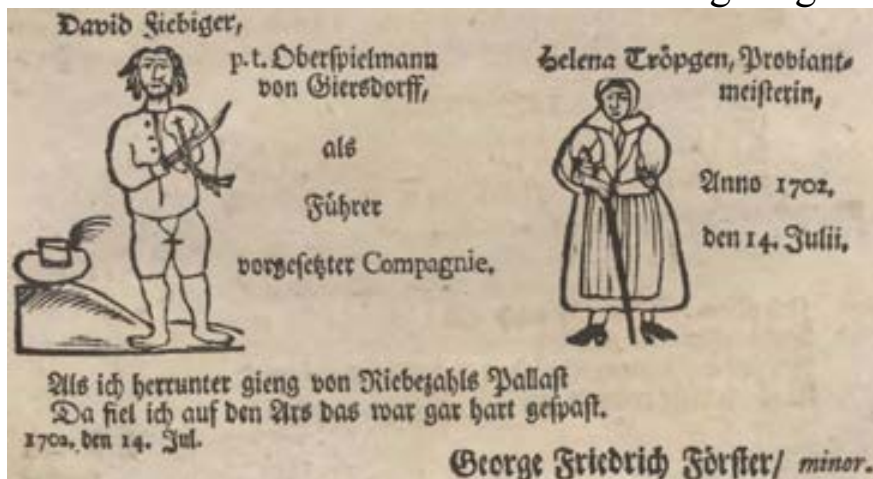 David Fiebiger,
p.t. Oberspielmann
von Giersdorff,
als
Führer
vorgesetzter Compagnie.
Helena Tröpgen, Proviant-
meisterin,
Anno 1702.
den 14. Julii.
Als ich herrunter gieng von Riebezahls Pallast
Da fiel ich auf den Ars das war gar hart gespast.
1702. den 14. Jul.
George Friedrich Förster/ minor.